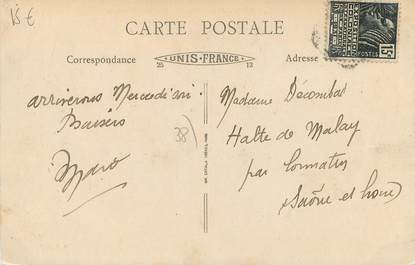 15 €
CARTE POSTALE
Correspondance
UNIS-FRANCE
25 13
Adresse
15c
POSTES
arriverons Mercredi soir.
Baisers
38)
Madame Décombas
Halte de Malay
par Cormatin
(Saône et Loire)